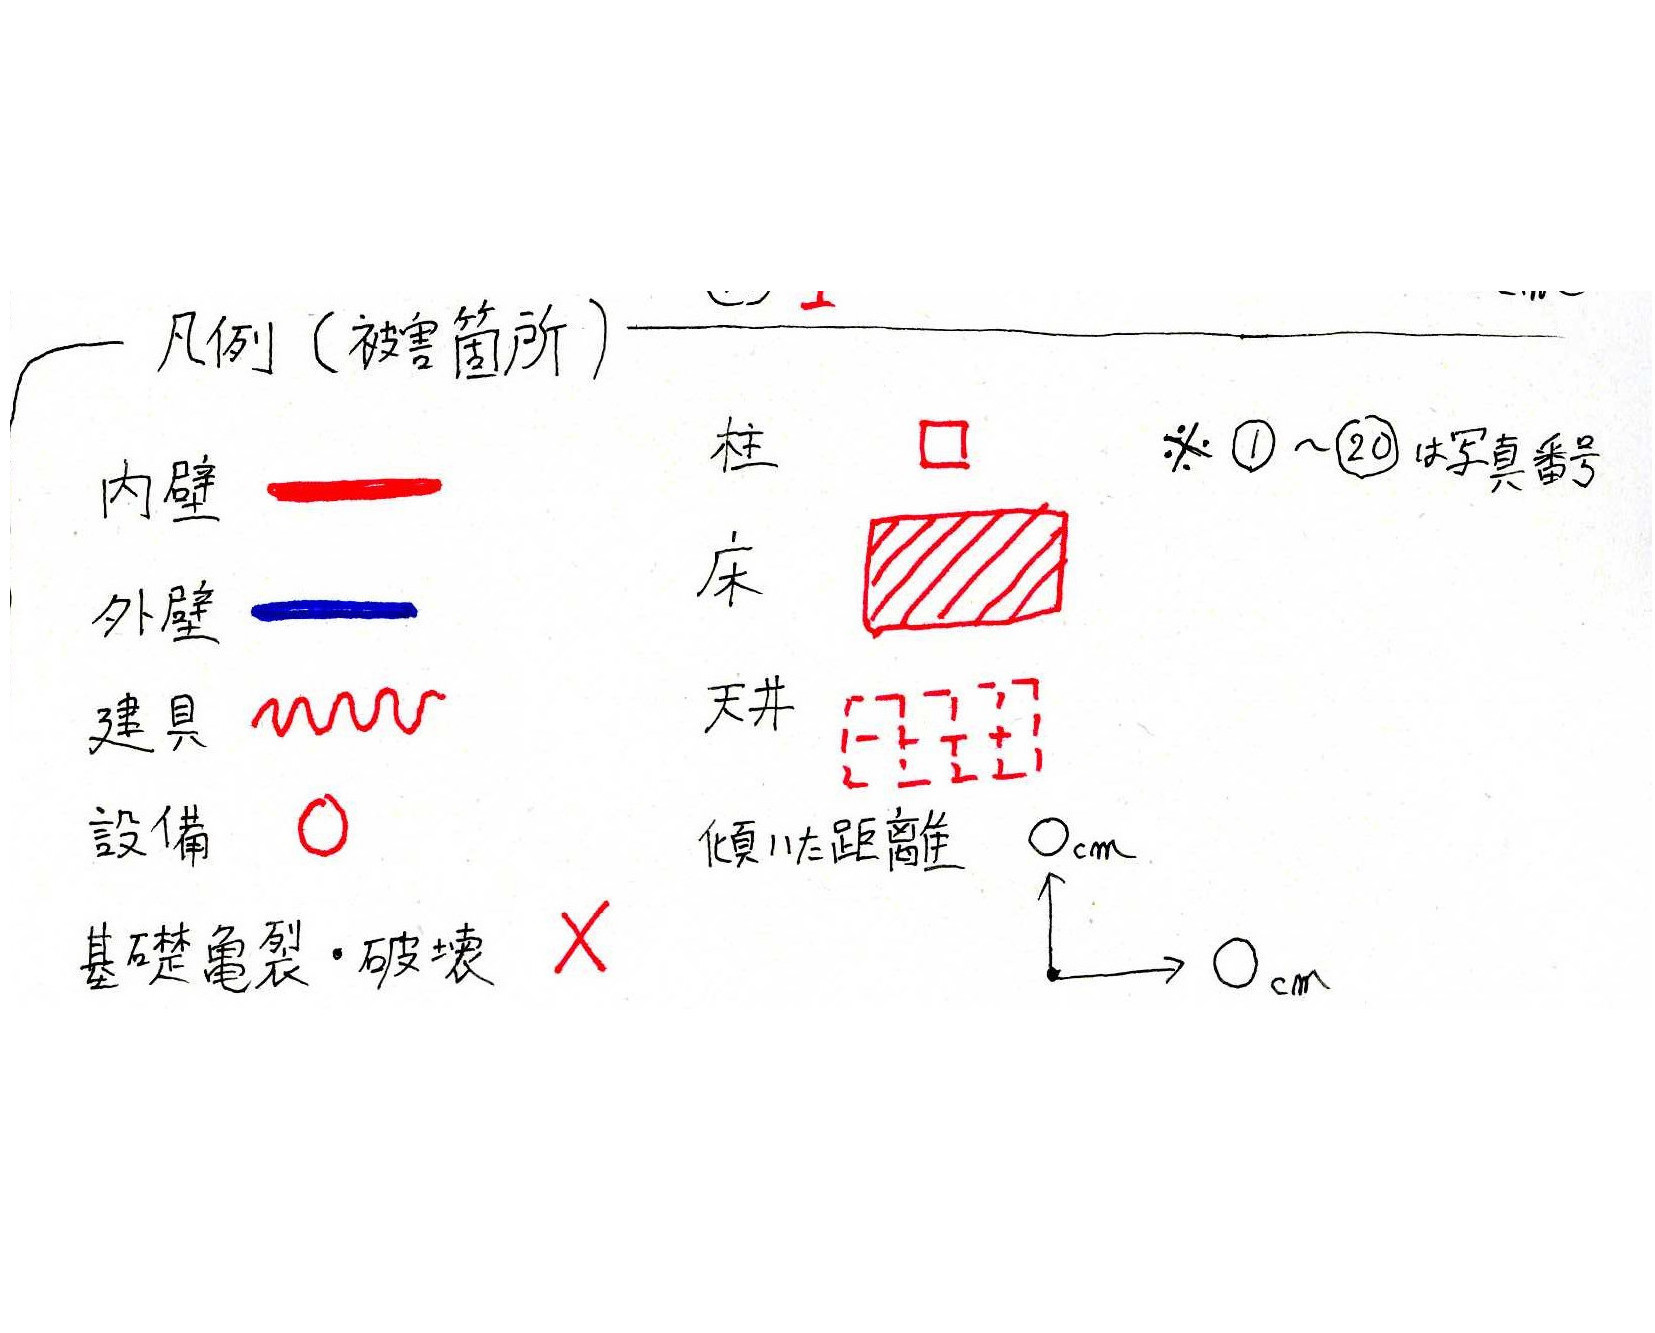 凡例(被害箇所)
内壁
外壁
建具
設備
基礎亀裂・破壊
柱
床
天井
傾いた距離
〇cm
〇cm
※①～⑳は写真番号